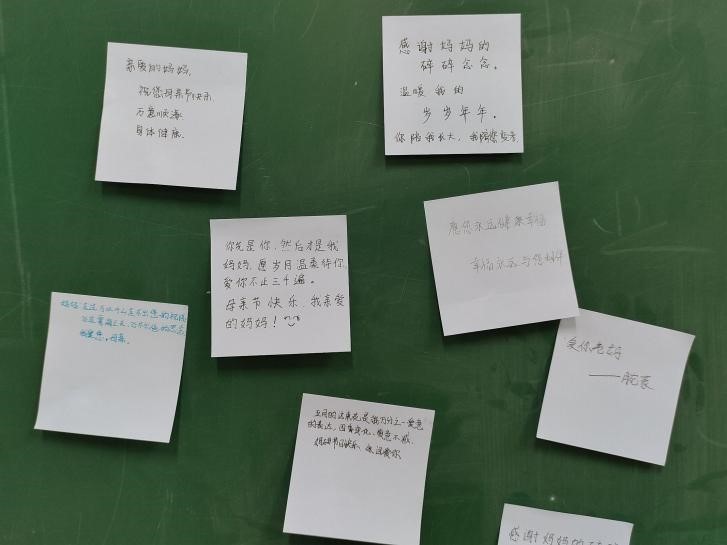 亲爱的妈妈,
祝您母亲节快乐
万事顺遂
身体健康.
感谢妈妈的
碎碎念念。
温暖我的
岁岁年年.
你陪我长大, 我陪您变老
你先是你,然后才是我
妈妈.愿岁月温柔待你,
爱你不止三千遍。
母亲节快乐,我亲爱
的妈妈!
愿您永远健康幸福
幸福永远与您相伴
妈妈:
爱你老妈
五月的这束花是我万分之一爱意
的表达,四季变化,爱意不减.
妈妈节日快乐 永远爱你
感谢妈妈的